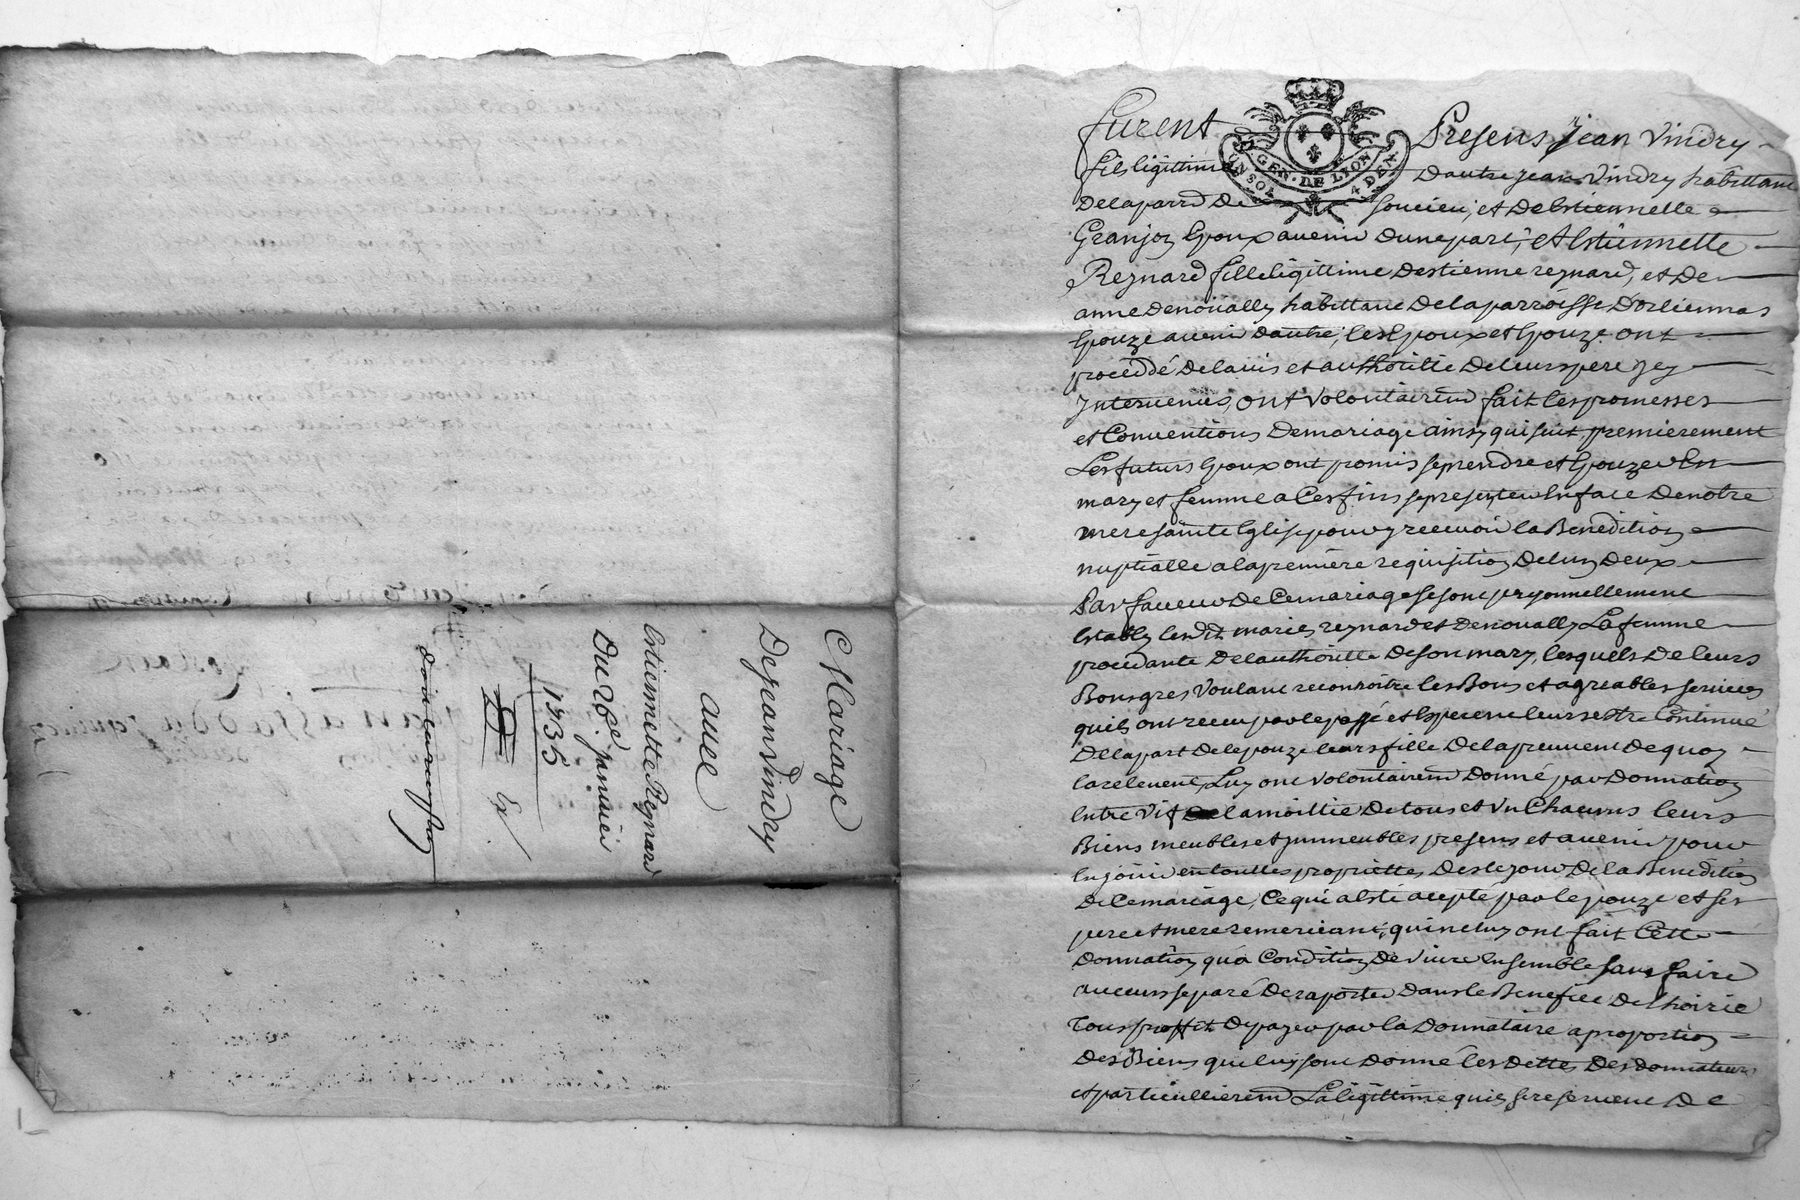 Mariage
De jean Vindry
avec
Estiennette Reynard
Du 26e janvier
1735
Furent Presens Jean Vindry
GEN. DE LYON
UN SOL 4 DEN.
fils ligittime Dautre jean Vindry habittant
Delaparr.d De soucieu, et De Estiennette
Granjon Epoux avenir Dunepart, et Estiennette
Reynard fille ligittime Destienne reynard, et De
anne Denoüally habittant Delaparroisse Dorliennas
Epouze avenir Dautre, les Epoux et Epouze ont
procéddé Delavis et authoritté Deleurs pere jcy
Intervenus, ont volontairem fait les promesses
et Conventions Demariage ainsy qui suit, premierement
Les futurs Epoux ont promis se prendre et Epouzer En
mary et femme a Ces fins se presenter En face Denotre
mere sainte Eglise pour y recevoir la Benedition
nuptialle ala première requisition Delun Deux
Par faveur De Ce mariage se sont personnellement
Estably lesdit mariés reynard et Denoually La femme
procedante De lauthoritté De son mary, lesquels De leurs
Bons gres Voulant reconnoitre les Bons et agreables services
quils ont receu par le passé et Esperent leurs estre Continué
De la part De lepouze leurs fille De la preuvent De quoy
la relevent, Luy ont volontairem Donné par Donnation
Entre Vif De la moittié De tous et Un Chacuns leurs
Biens meubles et jmmeubles presens et avenir pour
En joüir en touttes proprietes Des le jour De la Benedition
De Ce mariage, Ce qui a Esté acepté par lepouze et ses
pere et mere remerciant, qui ne luy ont fait Cette
Donnation qu'a Condition De vivre Ensemble sans faire
aucuns separé De raporter Dans le Benefice De lhoirie
Tous proffit De payer par la Donnataire a proportion
Des Biens qui luy sont Donné les Dettes Des donnateurs
et particullierem La ligittime quils se reservent De